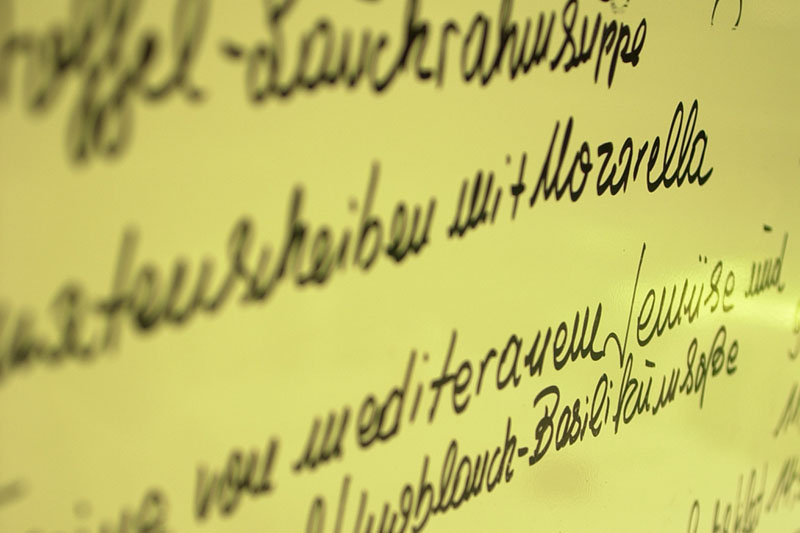 offel-Lauchrahmsuppe
matenscheiben mit Mozarella
von mediteranem Gemüse und
Knoblauch-Basilikumsoße